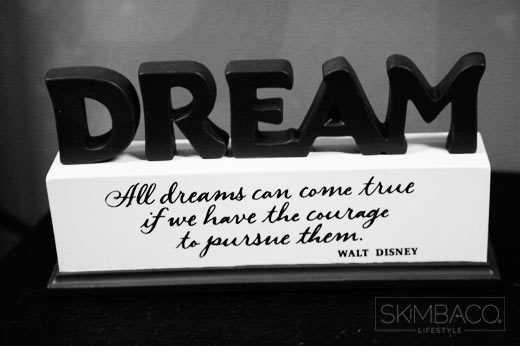 DREAM
All dreams can come true
if we have the courage
to pursue them.
WALT DISNEY
SKIMBACO
LIFESTYLE